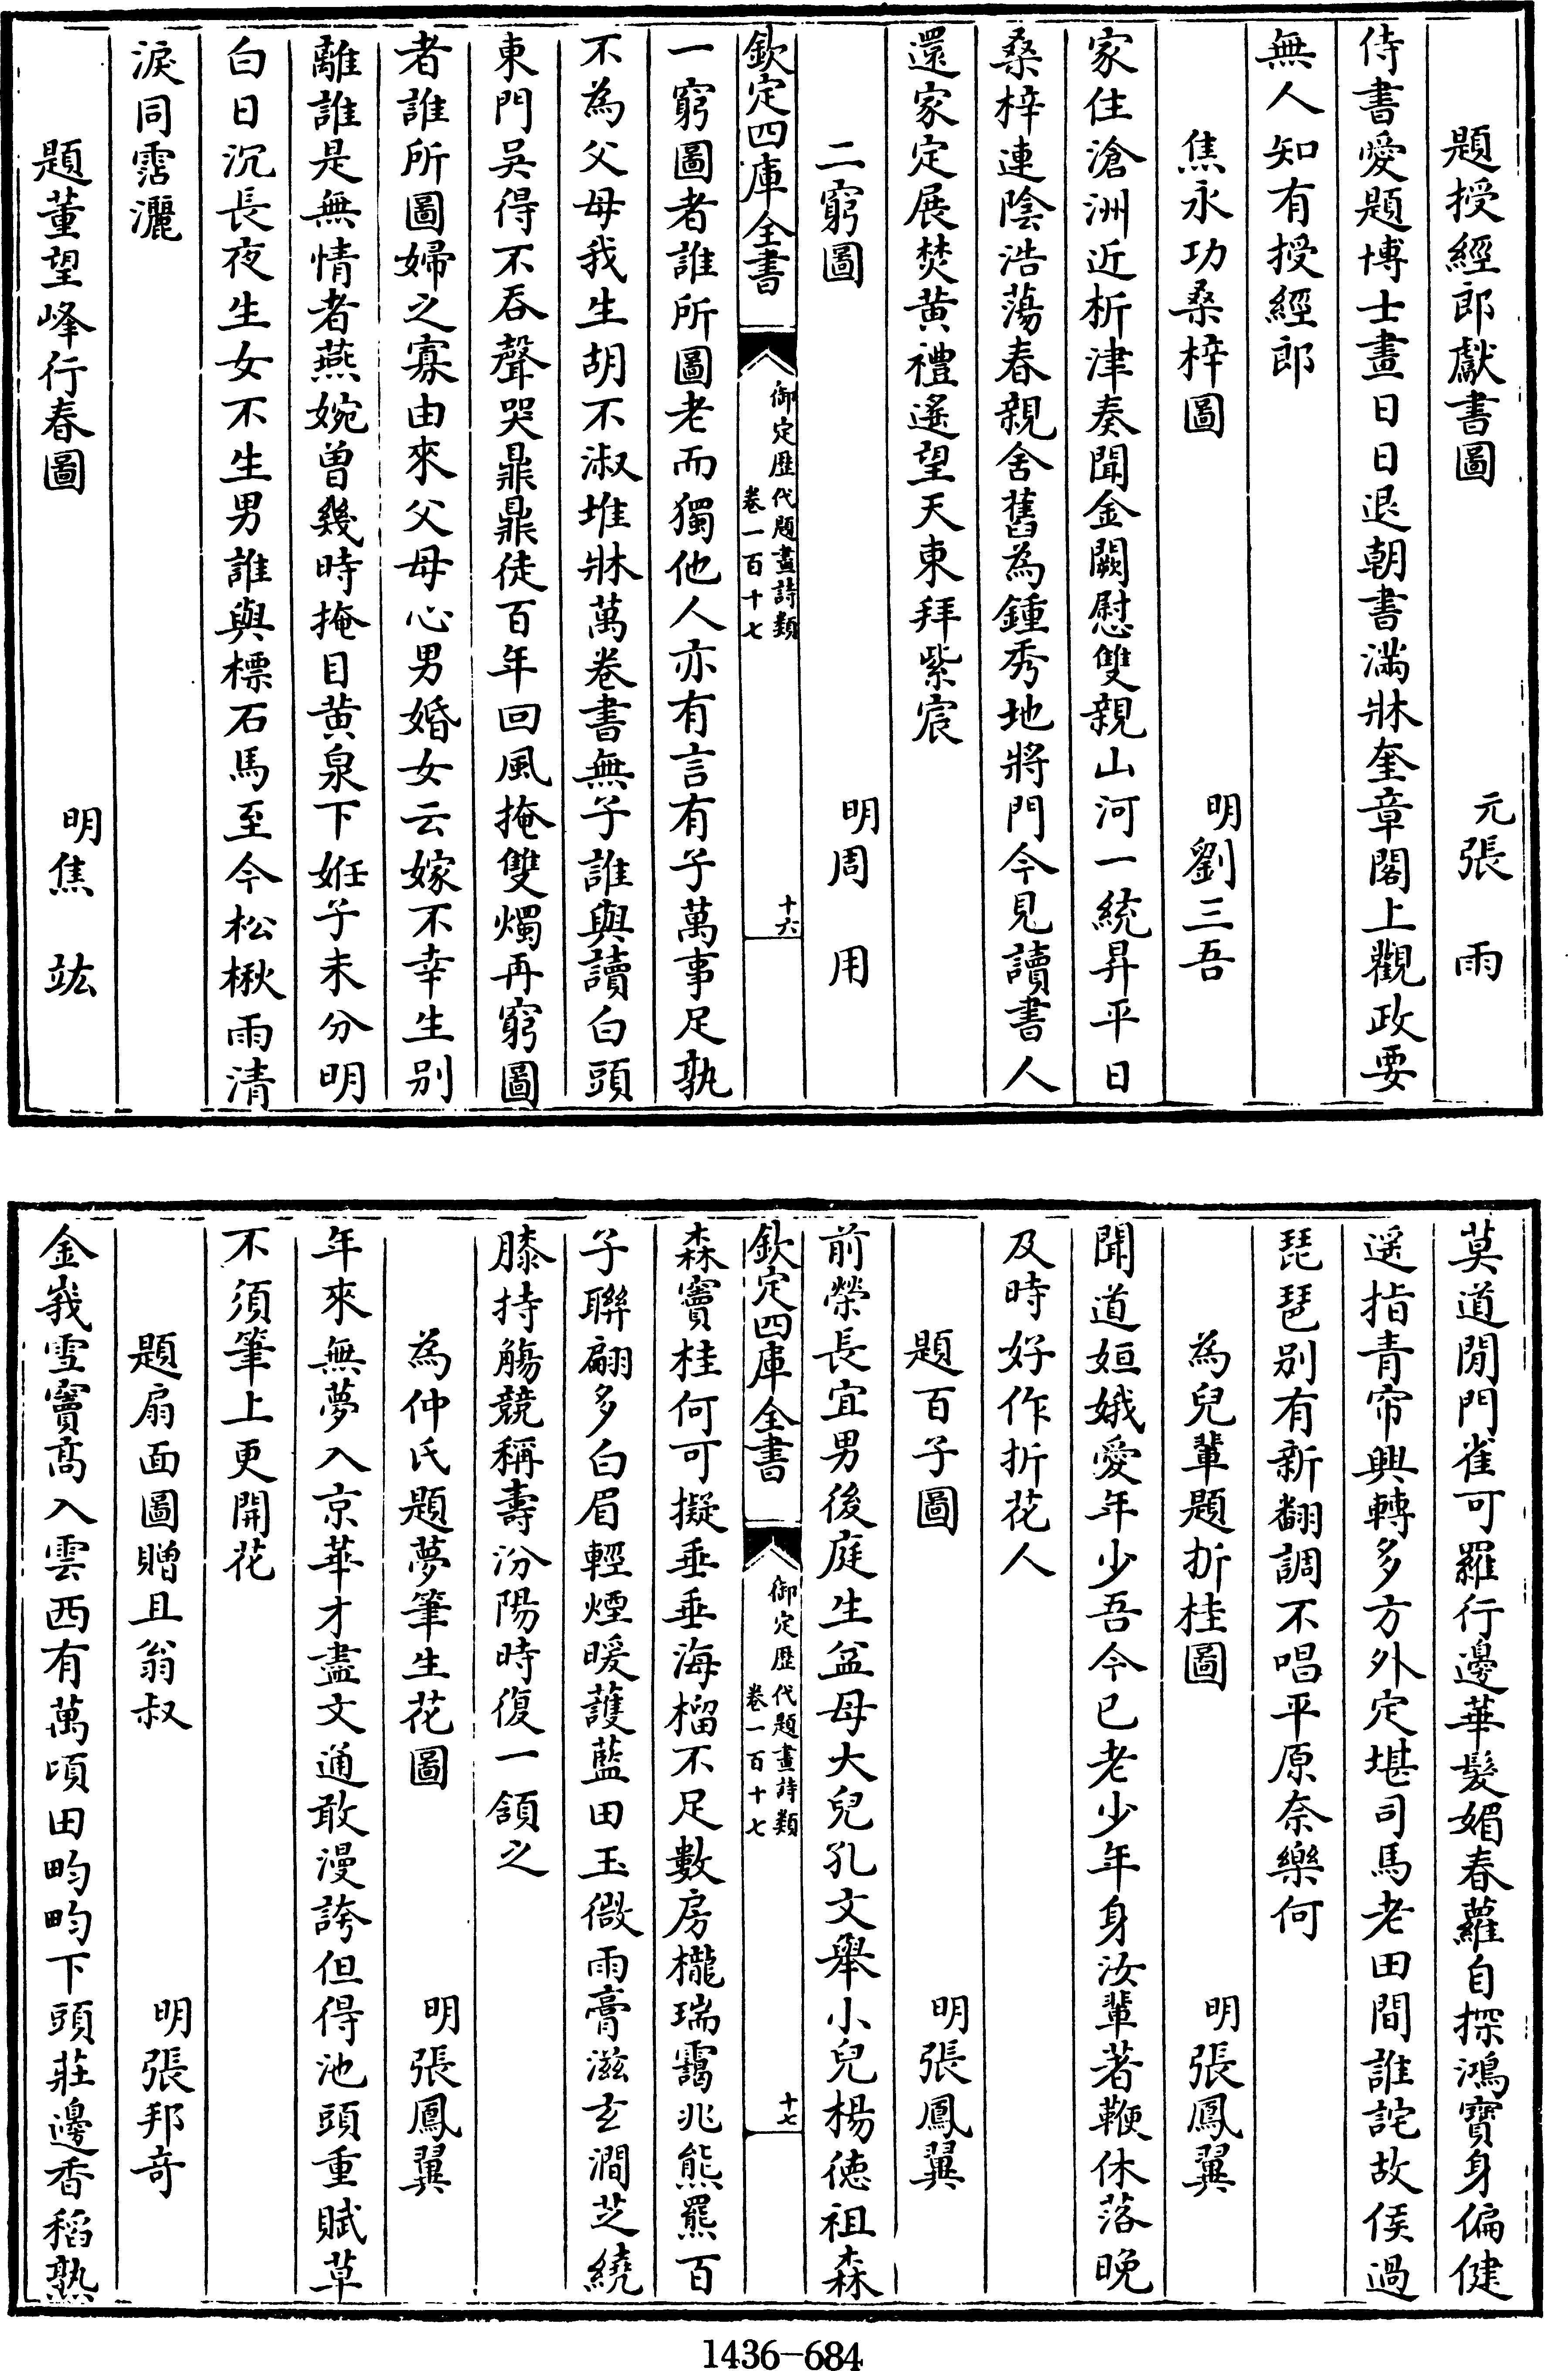 題授經郎獻書圖　元張　雨
侍書愛題博士畫日日退朝書滿牀奎章閣上觀政要
無人知有授經郎
焦永功桑梓圖　明劉三吾
家住滄洲近析津奏聞金闕慰雙親山河一統昇平日
桑梓連陰浩蕩春親舍舊為鍾秀地將門今見讀書人
還家定展焚黃禮遙望天東拜紫宸
二窮圖　明周　用
欽定四庫全書　御定歷代題畫詩類　卷一百十七　十六
一窮圖者誰所圖老而獨他人亦有言有子萬事足孰
不為父母我生胡不淑堆牀萬卷書無子誰與讀白頭
東門吳得不吞聲哭鼎鼎徒百年回風掩雙燭再窮圖
者誰所圖婦之寡由來父母心男婚女云嫁不幸生別
離誰是無情者燕婉曾幾時掩目黃泉下姙子未分明
白日沉長夜生女不生男誰與標石馬至今松楸雨清
淚同霑灑
題董望峰行春圖　明焦　竑
莫道閒門雀可羅行邊華髮媚春蘿自探鴻寶身偏健
遥指青帘興轉多方外定堪司馬老田間誰詫故侯過
琵琶別有新翻調不唱平原奈樂何
為兒輩題折桂圖　明張鳳翼
聞道姮娥愛年少吾今已老少年身汝輩著鞭休落晚
及時好作折花人
題百子圖　明張鳳翼
前榮長宜男後庭生盆母大兒孔文舉小兒楊德祖森
欽定四庫全書　御定歷代題畫詩類　卷一百十七　十七
森竇桂何可擬垂垂海榴不足數房櫳瑞靄兆熊羆百
子聯翩多白眉輕煙暖護藍田玉微雨膏滋玄澗芝繞
膝持觴競稱壽汾陽時復一頷之
為仲氏題夢筆生花圖　明張鳳翼
年來無夢入京華才盡文通敢漫誇但得池頭重賦草
不須筆上更開花
題扇面圖贈且翁叔　明張邦奇
金峩雪竇高入雲西有萬頃田畇畇下頭莊邊香稻熟
1436-684